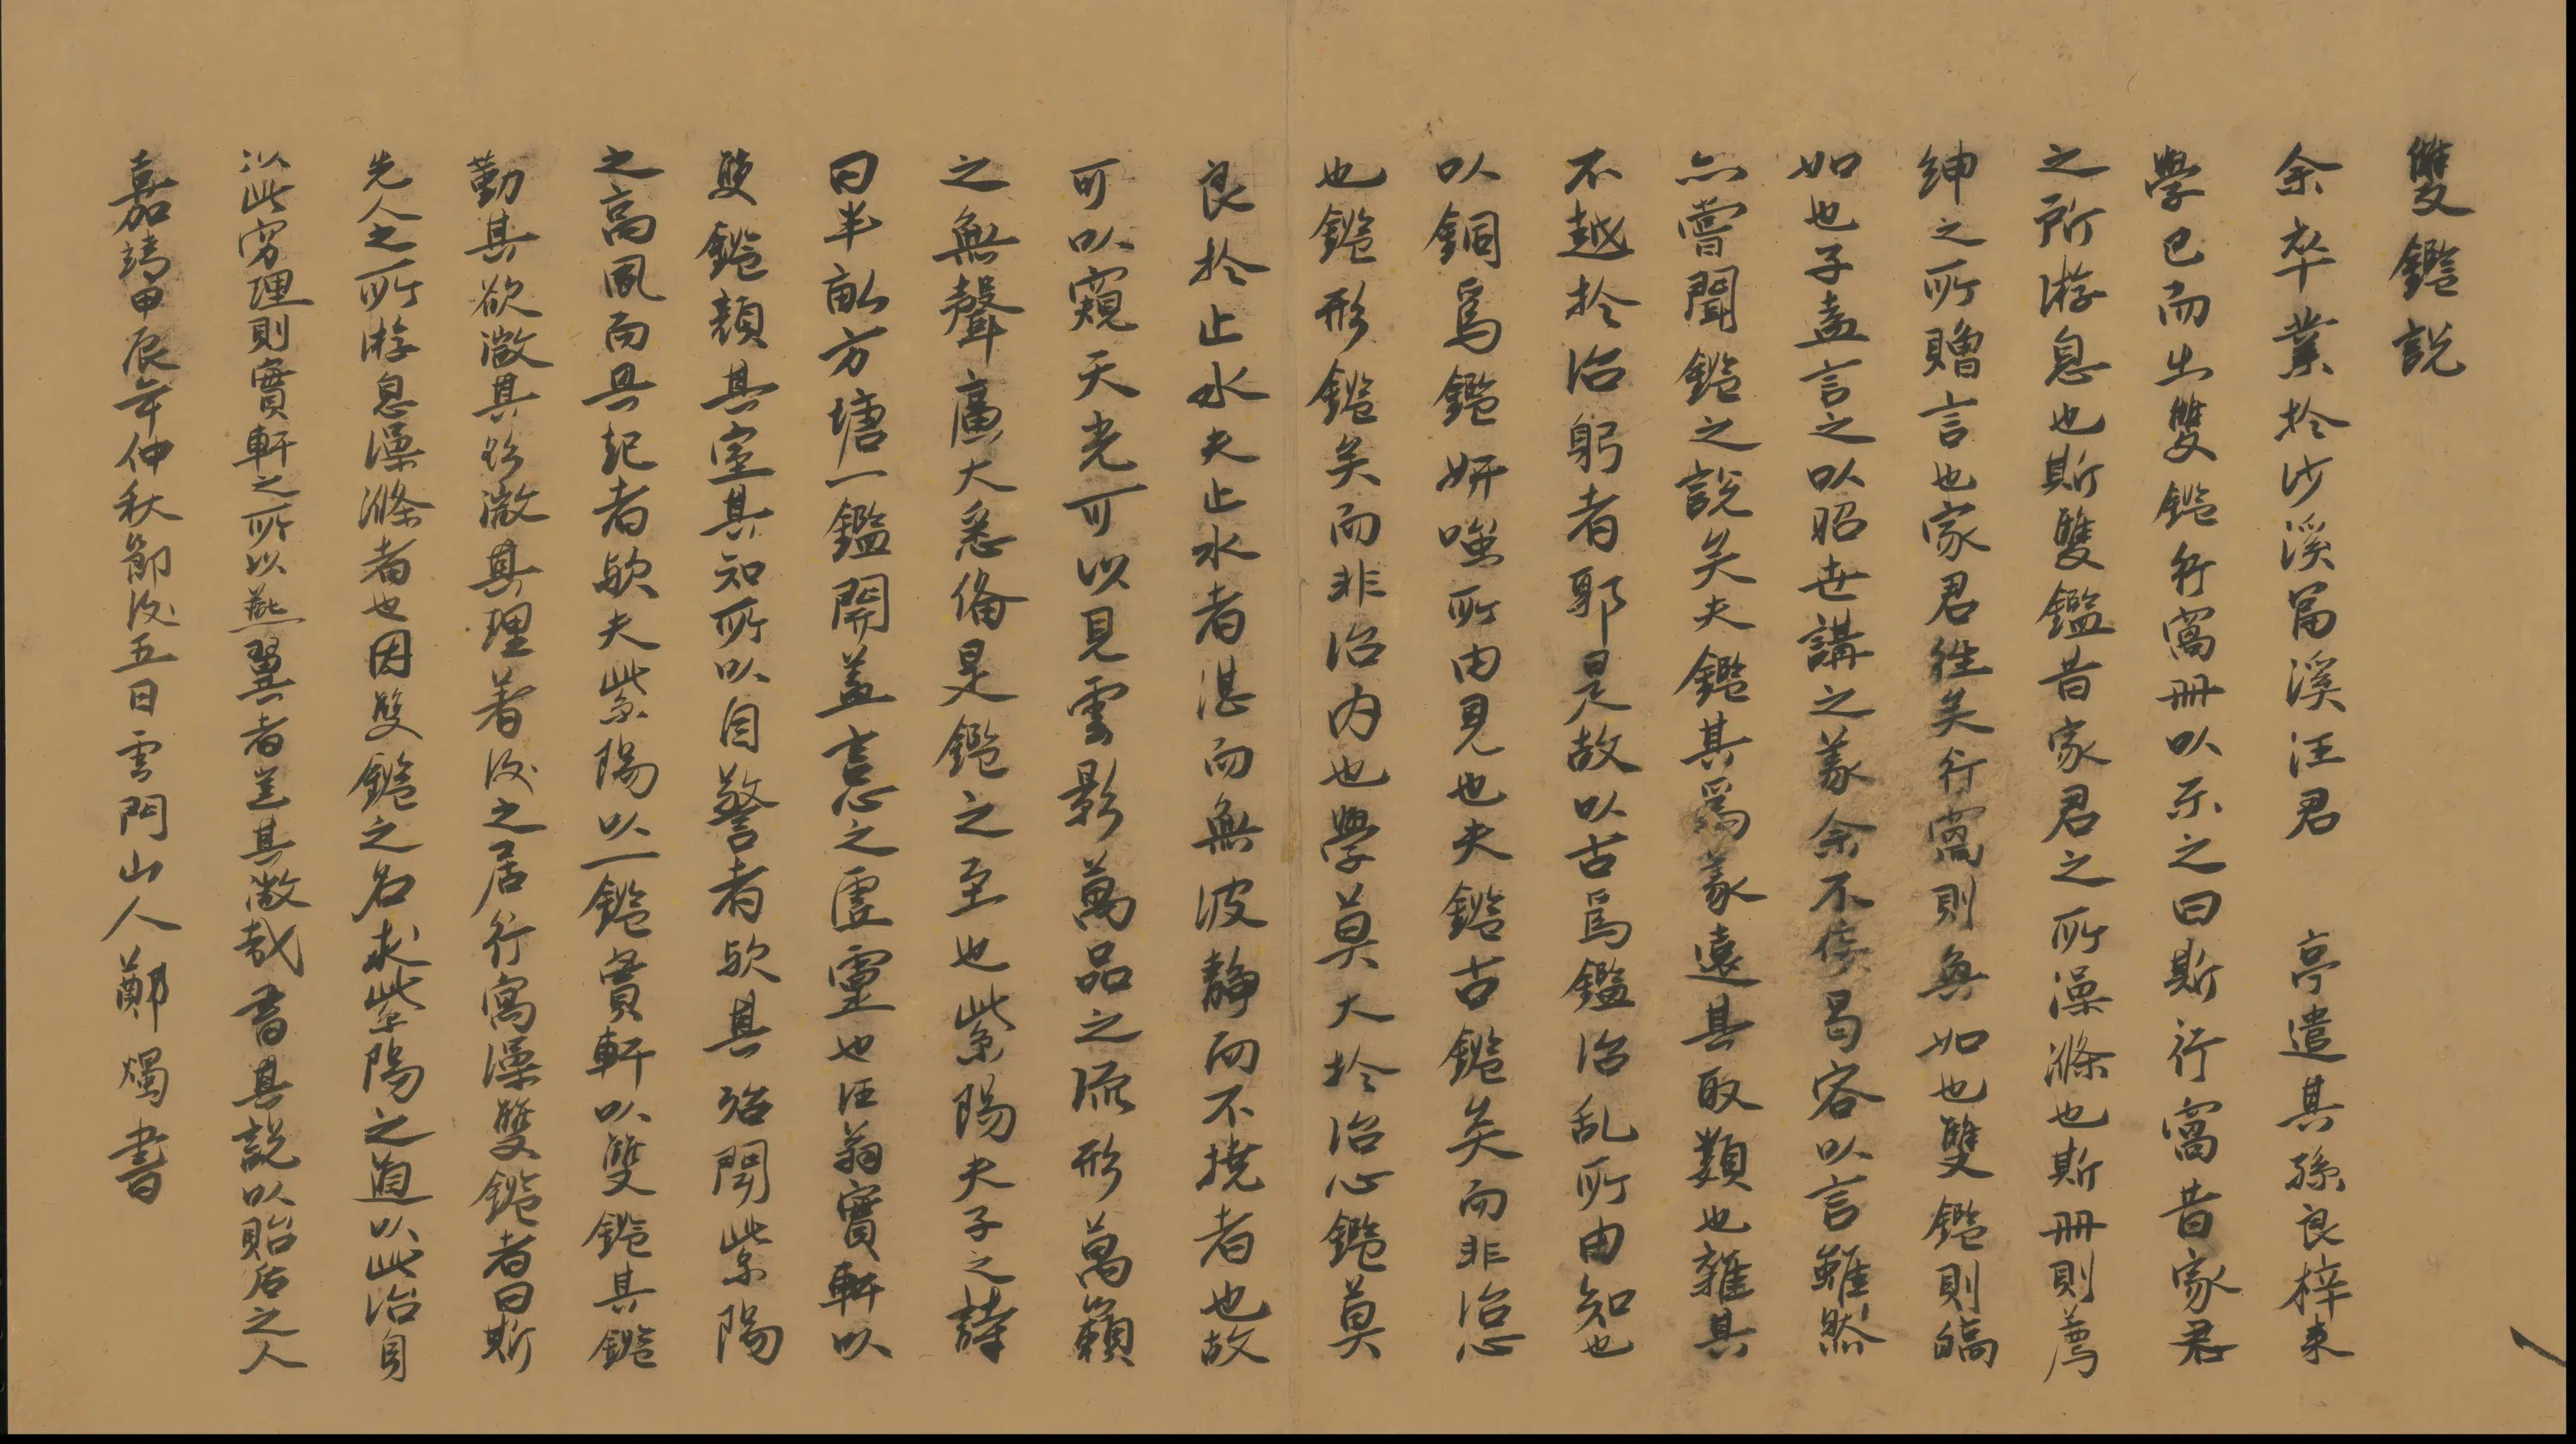 雙鑑說
余卒業於沙溪富溪汪君 亭遣其孫良梓來
學已而出雙鑑行窩冊以示之曰斯行窩昔家君
之所游息也斯雙鑑昔家君之所澡滌也斯冊則薦
紳之所贈言也家君往矣行窩則無如也雙鑑則皜
如也子盍言之以昭世講之義余不佞曷容以言雖然
亦嘗聞鑑之說矣夫鑑其為義遠其取類也雜其
不越於治躬者耶是故以古為鑑治乱所由知也
以銅為鑑妍媸所由見也夫鑑古鑑矣而非治
也鑑形鑑矣而非治内也學莫大於治心鑑莫
良於止水夫止水者湛而無波靜而不撓者也故
可以窺天光可以見雲影萬品之流形萬籟
之無聲廣大悉備是鑑之至也紫陽夫子之詩
曰半畝方塘一鑑開蓋言心之虛靈也汪翁實軒以
雙鑑顏其室其知所以自警者歟其殆聞紫陽
之高風而興起者歟夫紫陽以一鑑實軒以雙鑑其鑑
勤其欲澂其欲澂其理著後之居行窩澡雙鑑者曰斯
先人之所游息澡滌者也因雙鑑之名求紫陽之道以此治身
以此窮理則實軒之所以燕翼者豈其微哉書其說以貽后之人
嘉靖甲辰年仲秋節後五日雲門山人鄭燭書